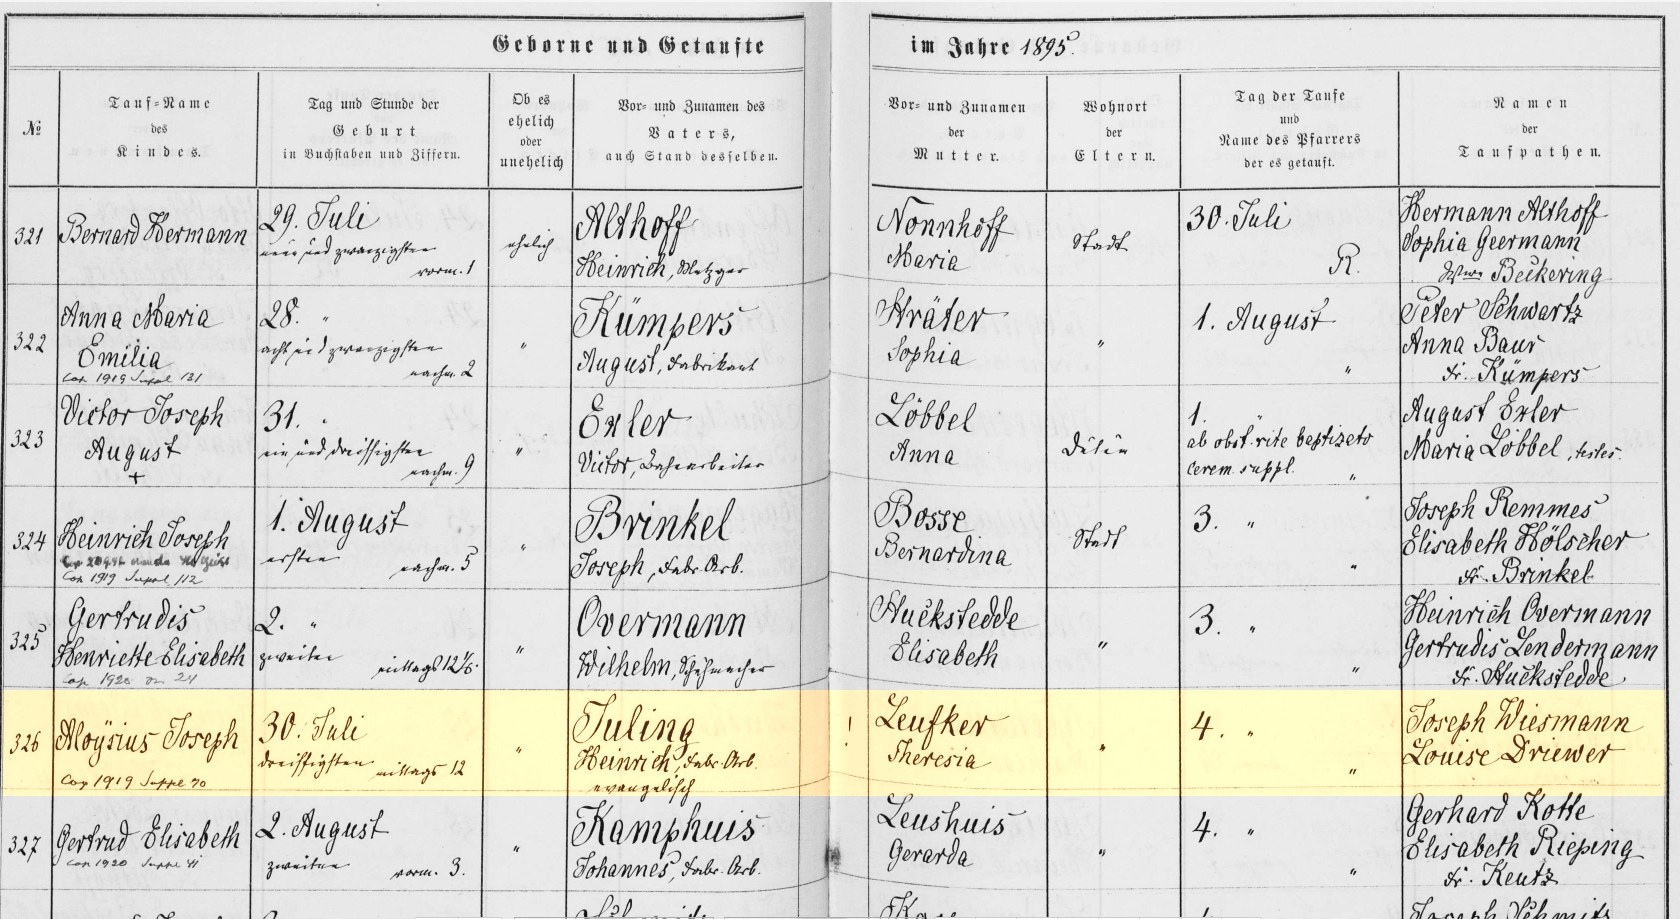 Geborne und Getaufte
im Jahre 1895.
№
Tauf=Name
des
Kindes.
Tag und Stunde der
Geburt
in Buchstaben und Ziffern.
Ob es
ehelich
oder
unehelich
Vor= und Zunamen des
Vaters,
auch Stand desselben.
Vor= und Zunamen
der
Mutter.
Wohnort
der
Eltern.
Tag der Taufe
und
Name des Pfarrers
der es getauft.
Namen
der
Taufpathen.
321
Bernard Hermann
29. Juli
neun und zwanzigsten
vorm. 1
ehelich
Althoff
Heinrich, Metzger
Nonnhoff
Maria
Stadt
30. Juli
R.
Hermann Althoff
Sophia Geermann
Beckering
322
Anna Maria
Emilia
Cop 1919 Suppl 131
28. "
acht und zwanzigsten
nachm. 2
"
Kümpers
August, Fabrikant
Sträter
Sophia
"
1. August
"
Peter Schwartz
Anna Baur
fr. Kümpers
323
Victor Joseph
August
+
31. "
ein und dreissigsten
nachm. 9
"
Exler
Victor, Bahnarbeiter
Löbbel
Anna
1. "
ab obst. rite baptizato
cerem. suppl.
"
August Exler
Maria Löbbel, testes.
324
Heinrich Joseph
Cop 1919 Suppl 112
1. August
ersten
nachm. 5
"
Brinkel
Joseph, Fabr. Arb.
Bosse
Bernardina
Stadt
3. "
"
Joseph Remmes
Elisabeth Hölscher
fr. Brinkel
325
Gertrudis
Henriette Elisabeth
Cop 1920 24
2. "
zweiten
mittags 12½
"
Overmann
Wilhelm, Schuhmacher
Huckstedde
Elisabeth
"
3. "
"
Heinrich Overmann
Gertrudis Lendermann
fr. Huckstedde
326
Aloÿsius Joseph
Cop 1919 Suppl 70
30. Juli
dreissigsten
mittags 12
"
Juling
Heinrich, Fabr. Arb.
evangelisch
!
Leufker
Theresia
"
4. "
"
Joseph Wiesmann
Louise Driewer
327
Gertrud Elisabeth
Cop 1920 Suppl 41
2. August
zweiten
vorm. 3.
"
Kamphuis
Johannes, Fabr. Arb.
Leushuis
Gerarda
"
4. "
"
Gerhard Kotte
Elisabeth Rieping
fr. Keutz